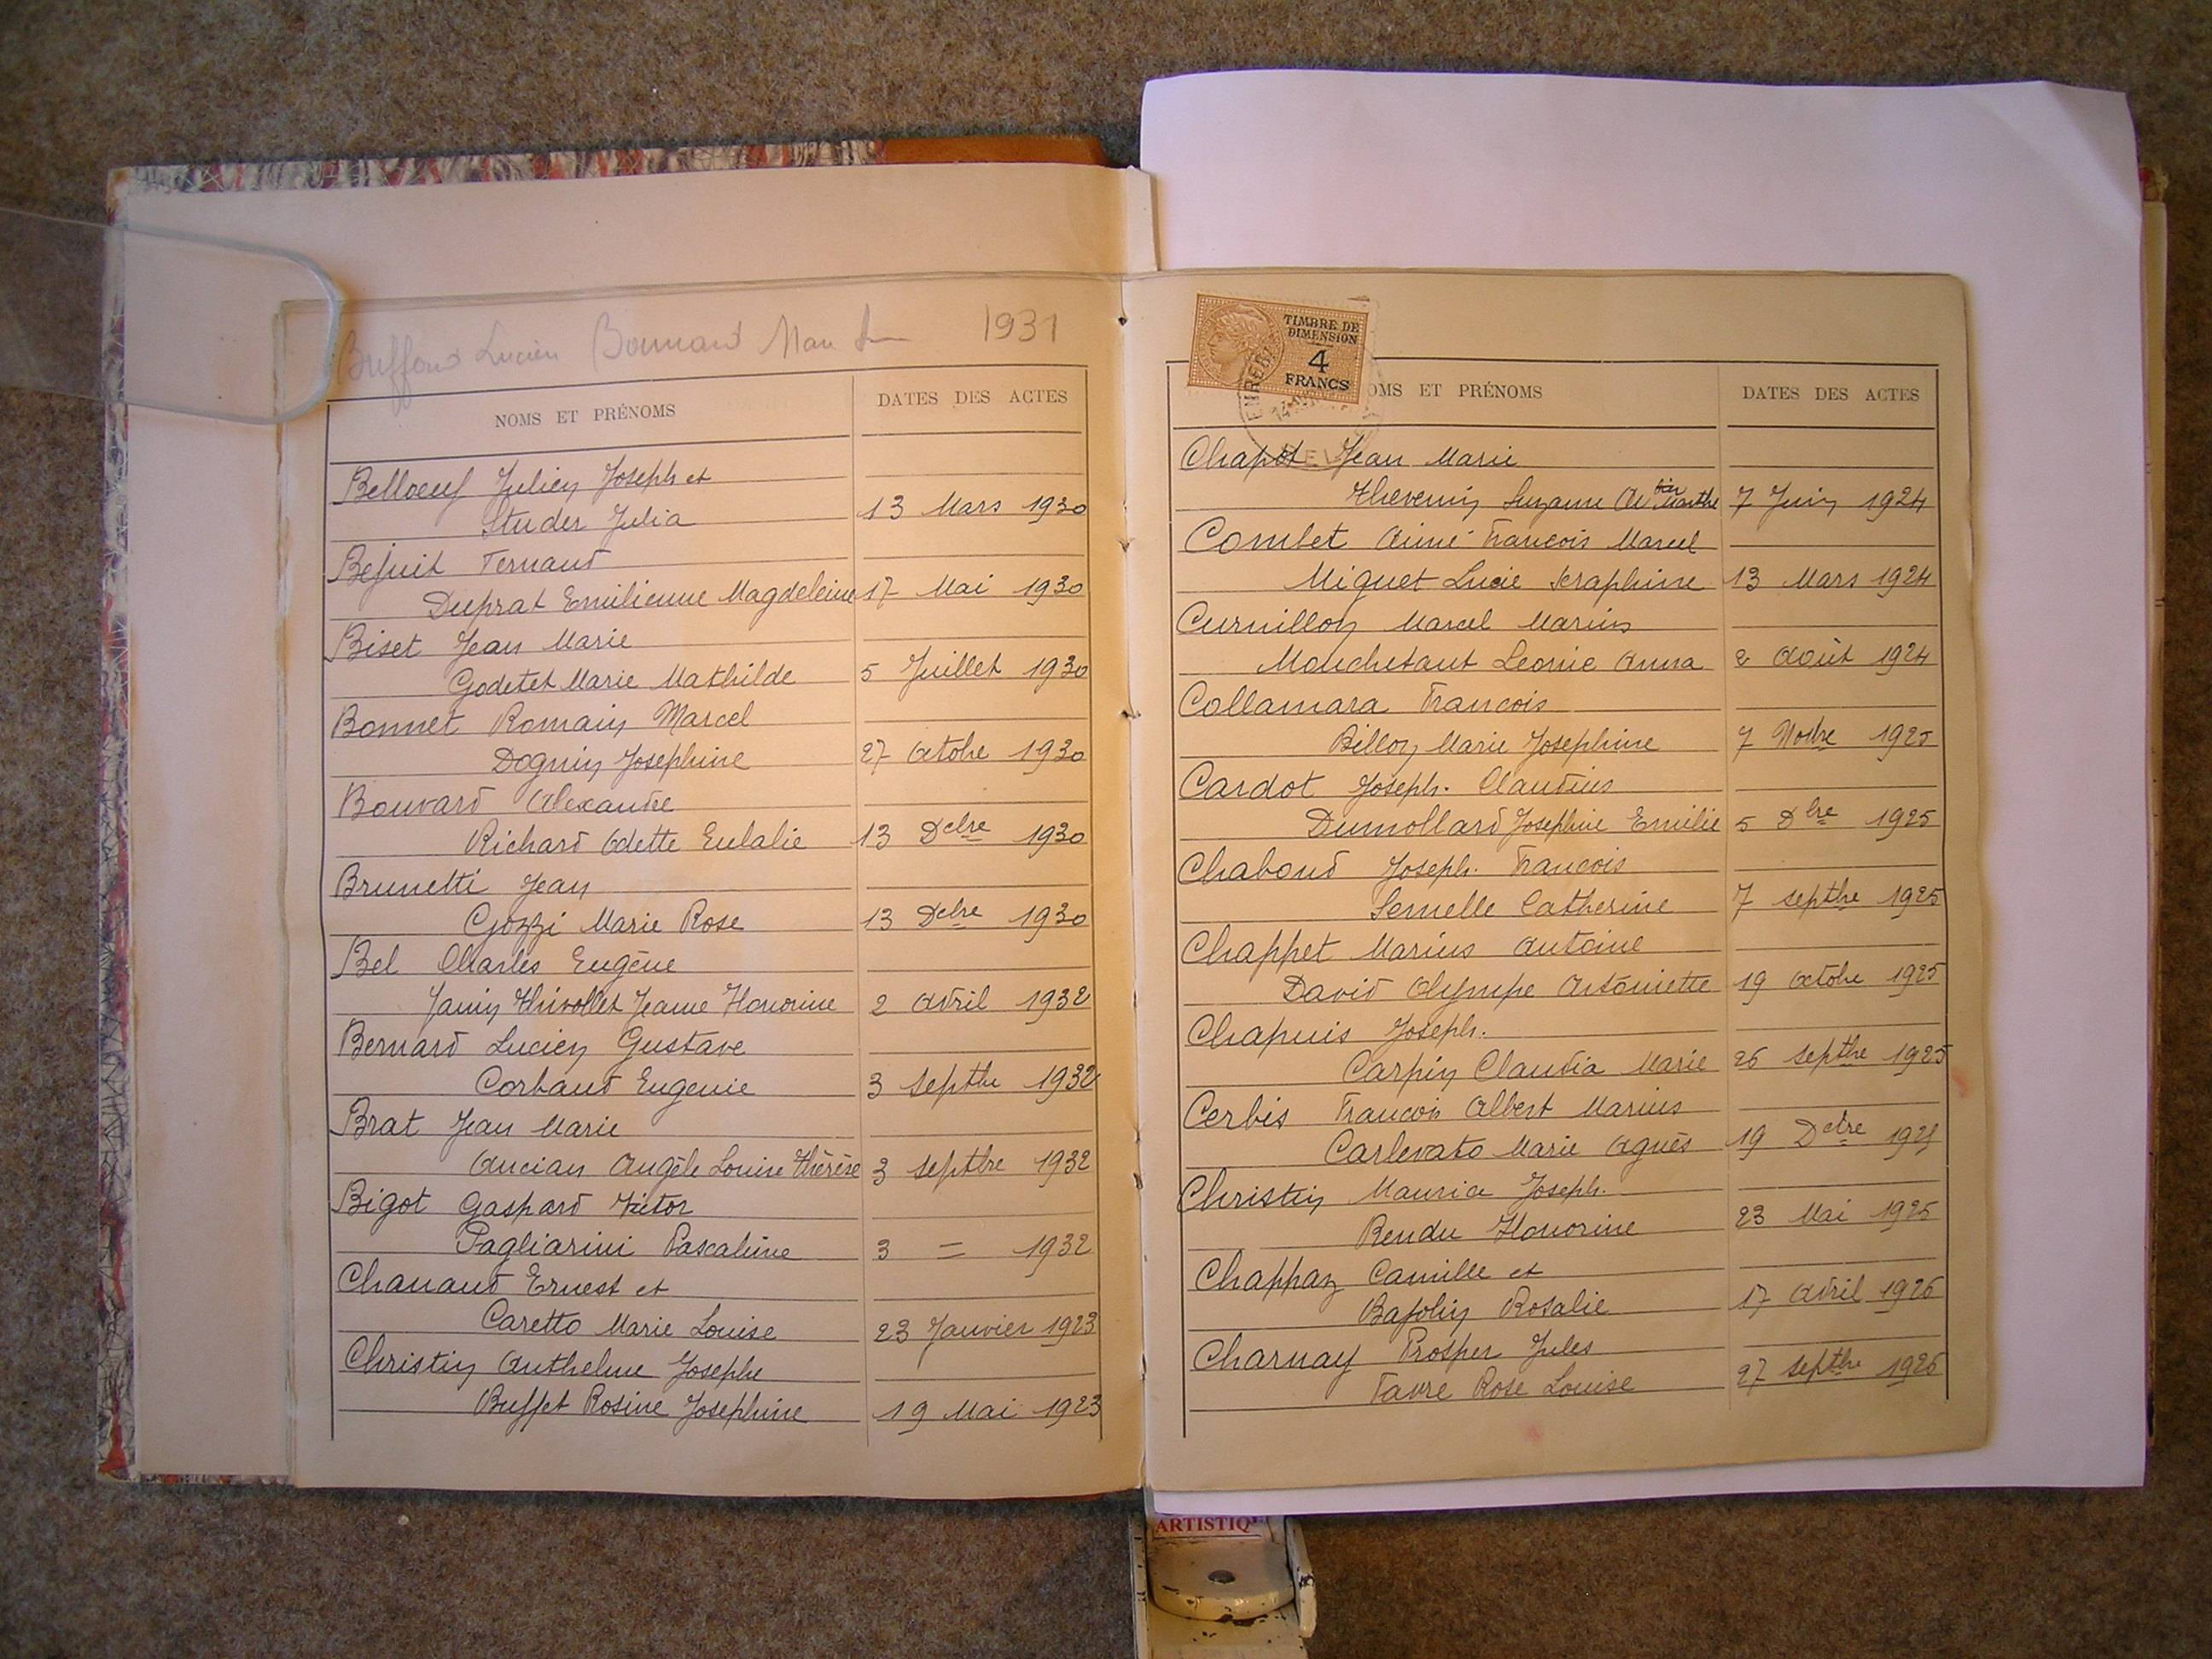 Buffard Lucien Bonnard 1931
NOMS ET PRÉNOMS DATES DES ACTES
Belloeuf Julien Joseph et
Studer Julia 13 Mars 1930
Bejuit Fernand
Duprat Emilienne Magdeleine 17 Mai 1930
Biset Jean Marie
Godetet Marie Mathilde 5 Juillet 1930
Bonnet Romain Marcel
Dognin Josephine 27 Octobre 1930
Bouvard Alexandre
Richard Odette Eulalie 13 Dcbre 1930
Brunetti Jean
Gozzi Marie Rose 13 Dcbre 1930
Bel Charles Eugène
Janin Thivollet Jeanne Honorine 2 Avril 1932
Bernard Lucien Gustave
Corbaud Eugenie 3 Septbre 1932
Brat Jean Marie
Ancian Angèle Louise Thérèse 3 Septbre 1932
Bigot Gaspard Victor
Pagliarini Pascaline 3 = 1932
Chanaud Ernest et
Caretto Marie Louise 23 Janvier 1923
Christin Anthelme Joseph
Buffet Rosine Josephine 19 Mai 1923
TIMBRE DE
DIMENSION
4
FRANCS
OMS ET PRÉNOMS DATES DES ACTES
Chapot Jean Marie
Thevenin Suzanne Marthe 7 Juin 1924
Combet Aimé Francois Marcel
Miguet Lucie Seraphine 13 Mars 1924
Curnillon Marcel Marius
Mouchetant Leonie Anna 2 Août 1924
Collamara Francois
Billon Marie Josephine 7 Novbre 1925
Cardot Joseph Claudius
Dumollard Josephine Emilie 5 Dbre 1925
Chaboud Joseph Francois
Semelle Catherine 7 Septbre 1925
Chappet Marius Antoine
David Olympe Antoinette 19 Octobre 1925
Chapuis Joseph
Carpin Claudia Marie 26 Septbre 1925
Cerbis Francois Albert Marius
Carlevato Marie Agnès 19 Dcbre 1925
Christin Maurice Joseph
Rendu Honorine 23 Mai 1925
Chappaz Camille et
Bajolin Rosalie 17 Avril 1926
Charnay Prosper Jules
Favre Rose Louise 27 Septbre 1926
ARTISTIQ